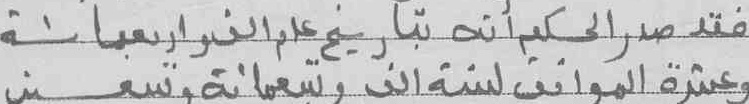 فقد صدر الحكم أنه بتاريخ عام الف واربعمائة
وعشرة الموافق لسنة الف وتسعمائة وتسعين